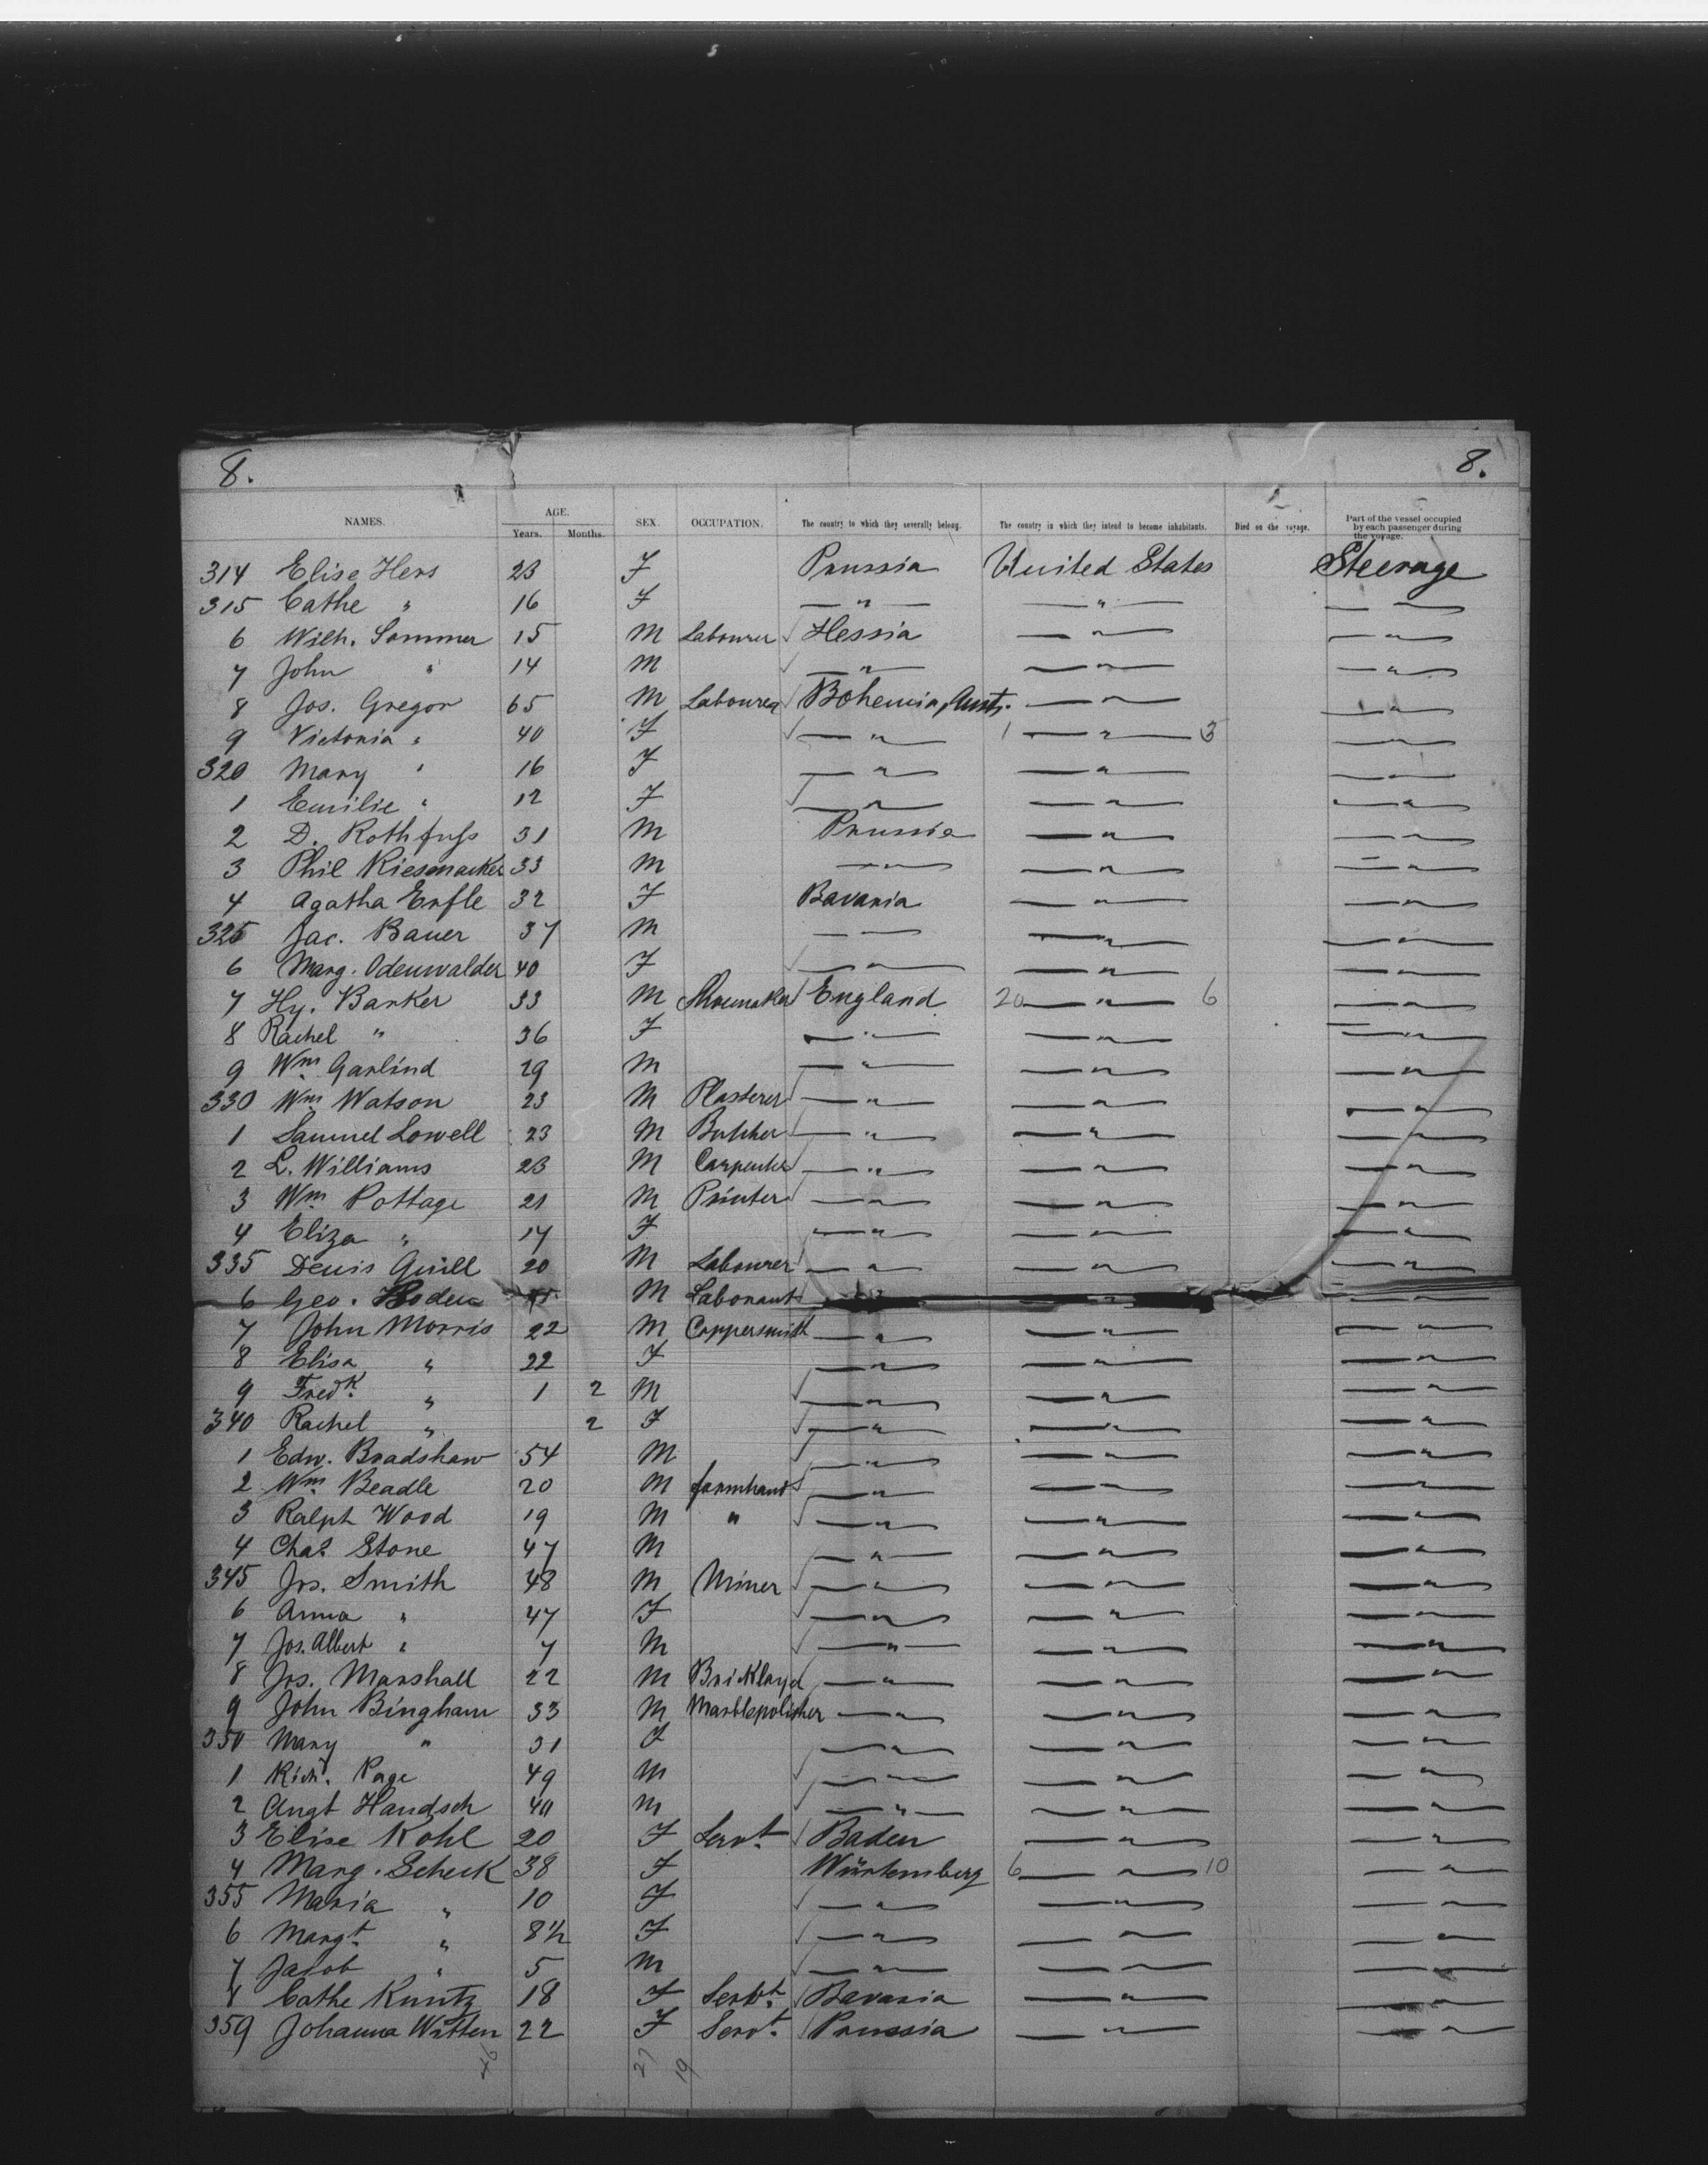 8. 8.
NAMES. AGE. Years. Months. SEX. OCCUPATION. The country to which they severally belong. The country in which they intend to become inhabitants. Died on the voyage. Part of the vessel occupied by each passenger during the voyage.
314 Elise Hers 23 F Prussia United States Steerage
315 Cathe " 16 F — " — — " — — —
6 Wilh. Sommer 15 M Labourer Hessia — " — — " —
7 John " 14 M — " — — " — — " —
8 Jos. Gregor 65 M Labourer Bohemia, Aust. — " — — " —
9 Victonia " 40 F — " — 1 — " — 3 — " —
320 Mary " 16 F — " — — " — — " —
1 Emilie " 12 F — " — — " — — " —
2 D. Rothfuss 31 M Prussia — " — — " —
3 Phil Riesmacker 33 M — " — — " — — " —
4 Agatha Erfle 32 F Bavaria — " — — " —
325 Jac. Bauer 37 M — — — " — — " —
6 Marg. Odenwalder 40 F — " — — " — — " —
7 Hy. Barker 33 M Shoemaker England 20 — " — 6 — " —
8 Rachel " 36 F — " — — " — — " —
9 Wm. Garlind 29 M — " — — " — — " —
330 Wm. Watson 23 M Plasterer — " — — " — — " —
1 Samuel Lowell 23 M Butcher — " — — " — — " —
2 L. Williams 23 M Carpenter — " — — " — — " —
3 Wm. Pottage 21 M Printer — " — — " — — " —
4 Eliza " 17 F — " — — " — — " —
335 Denis Quill 20 M Labourer — " — — " — — " —
6 Geo. M — " — — " —
7 John Morris 22 M Coppersmith — " — — " — — " —
8 Elisa " 22 F — " — — " — — " —
9 Fredk. " 1 2 M — " — — " — — " —
340 Rachel " 2 F — " — — " — — " —
1 Edw. Bradshaw 54 M — " — — " — — " —
2 Wm. Beadle 20 M farmhand — " — — " — — " —
3 Ralph Wood 19 M " — " — — " — — " —
4 Chas. Stone 47 M — " — — " — — " —
345 Jos. Smith 48 M Miner — " — — " — — " —
6 Anna " 47 F — " — — " — — " —
7 Jos. Albert " 7 M — " — — " — — " —
8 Jos. Marshall 22 M Bricklayd — " — — " — — " —
9 John Bingham 33 M Marblepolisher — " — — " — — " —
350 Mary " 31 F — " — — " — — " —
1 Richd. Page 49 M — " — — " — — " —
2 Augt Handsch 40 M — " — — " — — " —
3 Elise Kohl 20 F Servt. Baden — " — — " —
4 Marg. Scheck 38 F Würtemberg 6 — " — 10 — " —
355 Maria " 10 F — " — — " — — " —
6 Margt. " 8 1/2 F — " — — " — — " —
7 Jacob " 5 M — " — — " — — " —
8 Cathe Kuntz 18 F Servt. Bavaria — " — — " —
359 Johanna Witten 22 F Servt. Prussia — " — — " —
46 27 19